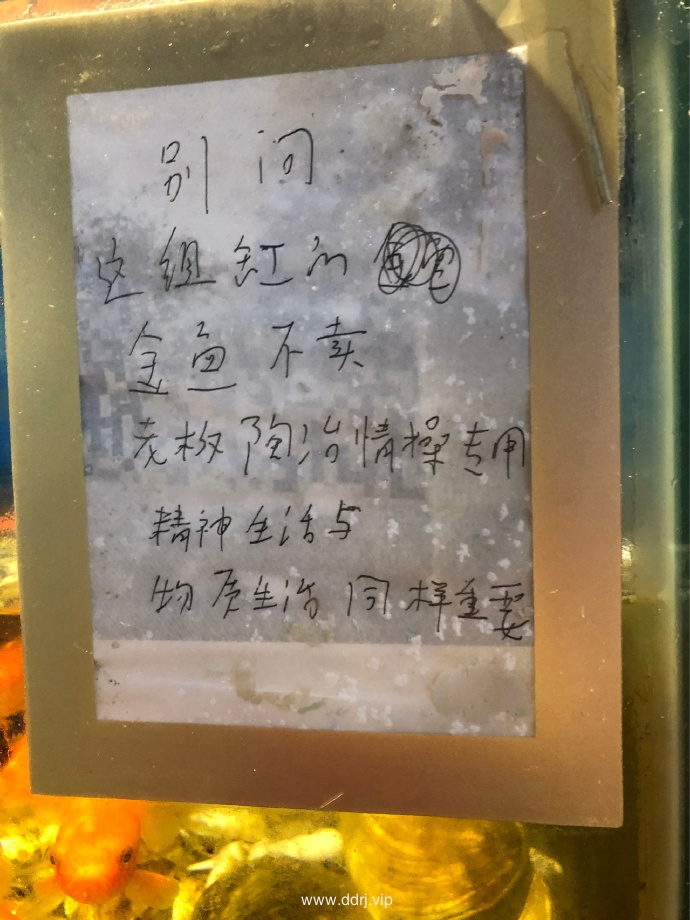 别问
这组缸的
金鱼不卖
老板陶冶情操专用
精神生活与
物质生活同样重要
www.ddrj.vip